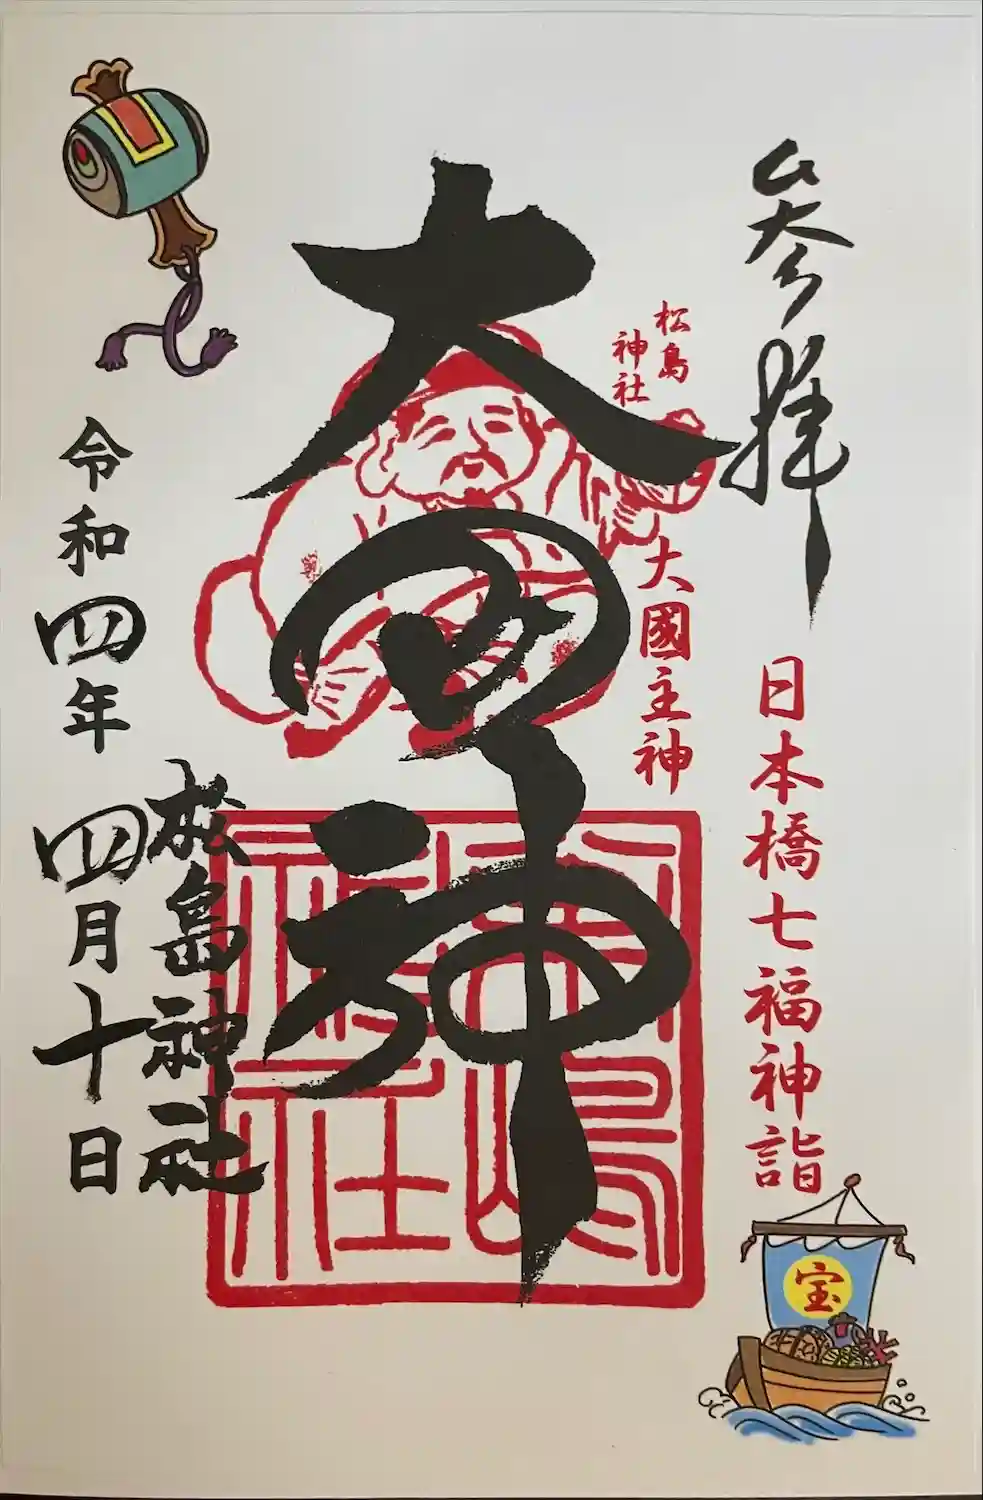 参拝
日本橋七福神詣
宝
松島
神社
大國主神
大国神
松嶋
神社
松島神社
令和四年四月十日